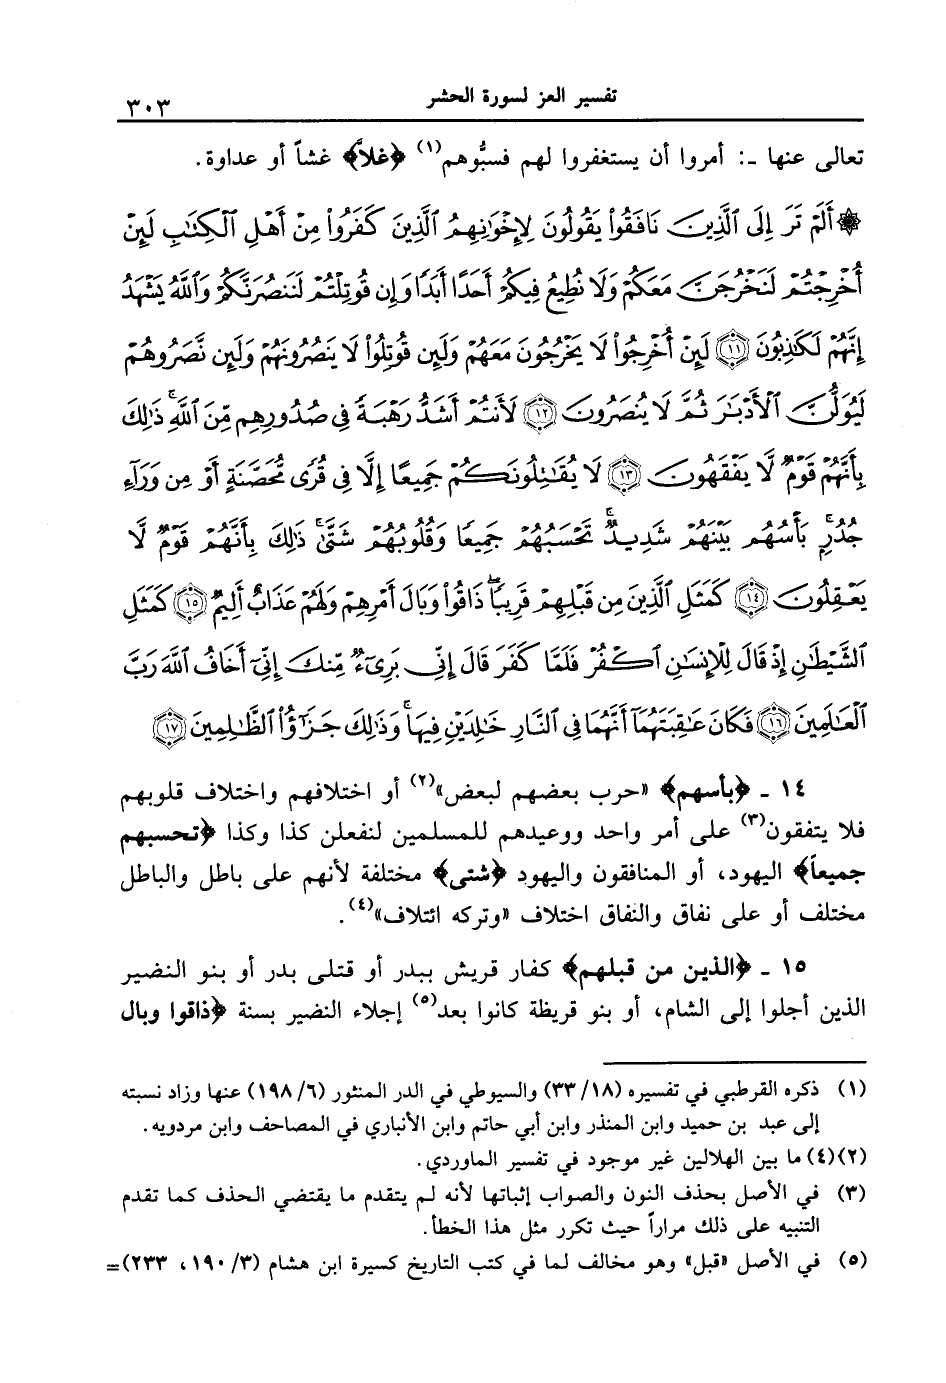 تفسير العز لسورة الحشر
٣٠٣
تعالى عنها ـ: أمروا أن يستغفروا لهم فسبُّوهم(١) ﴿غلاًّ﴾ غشاً أو عداوة.
۞ أَلَمْ تَرَ إِلَى ٱلَّذِينَ نَافَقُوا۟ يَقُولُونَ لِإِخْوَٰنِهِمُ ٱلَّذِينَ كَفَرُوا۟ مِنْ أَهْلِ ٱلْكِتَٰبِ لَئِنْ
أُخْرِجْتُمْ لَنَخْرُجَنَّ مَعَكُمْ وَلَا نُطِيعُ فِيكُمْ أَحَدًا أَبَدًا وَإِن قُوتِلْتُمْ لَنَنصُرَنَّكُمْ وَٱللَّهُ يَشْهَدُ
إِنَّهُمْ لَكَٰذِبُونَ ﴿١١﴾ لَئِنْ أُخْرِجُوا۟ لَا يَخْرُجُونَ مَعَهُمْ وَلَئِن قُوتِلُوا۟ لَا يَنصُرُونَهُمْ وَلَئِن نَّصَرُوهُمْ
لَيُوَلُّنَّ ٱلْأَدْبَٰرَ ثُمَّ لَا يُنصَرُونَ ﴿١٢﴾ لَأَنتُمْ أَشَدُّ رَهْبَةً فِى صُدُورِهِم مِّنَ ٱللَّهِ ۚ ذَٰلِكَ
بِأَنَّهُمْ قَوْمٌ لَّا يَفْقَهُونَ ﴿١٣﴾ لَا يُقَٰتِلُونَكُمْ جَمِيعًا إِلَّا فِى قُرًى مُّحَصَّنَةٍ أَوْ مِن وَرَآءِ
جُدُرٍۭ ۚ بَأْسُهُم بَيْنَهُمْ شَدِيدٌ ۚ تَحْسَبُهُمْ جَمِيعًا وَقُلُوبُهُمْ شَتَّىٰ ۚ ذَٰلِكَ بِأَنَّهُمْ قَوْمٌ لَّا
يَعْقِلُونَ ﴿١٤﴾ كَمَثَلِ ٱلَّذِينَ مِن قَبْلِهِمْ قَرِيبًا ۖ ذَاقُوا۟ وَبَالَ أَمْرِهِمْ وَلَهُمْ عَذَابٌ أَلِيمٌ ﴿١٥﴾ كَمَثَلِ
ٱلشَّيْطَٰنِ إِذْ قَالَ لِلْإِنسَٰنِ ٱكْفُرْ فَلَمَّا كَفَرَ قَالَ إِنِّى بَرِىٓءٌ مِّنكَ إِنِّىٓ أَخَافُ ٱللَّهَ رَبَّ
ٱلْعَٰلَمِينَ ﴿١٦﴾ فَكَانَ عَٰقِبَتَهُمَآ أَنَّهُمَا فِى ٱلنَّارِ خَٰلِدَيْنِ فِيهَا ۚ وَذَٰلِكَ جَزَٰٓؤُا۟ ٱلظَّٰلِمِينَ ﴿١٧﴾
١٤ ـ ﴿بأسهم﴾ «حرب بعضهم لبعض»(٢) أو اختلافهم واختلاف قلوبهم
فلا يتفقون(٣) على أمر واحد ووعيدهم للمسلمين لنفعلن كذا وكذا ﴿تحسبهم
جميعاً﴾ اليهود، أو المنافقون واليهود ﴿شتى﴾ مختلفة لأنهم على باطل والباطل
مختلف أو على نفاق والنفاق اختلاف «وتركه ائتلاف»(٤).
١٥ ـ ﴿الذين من قبلهم﴾ كفار قريش ببدر أو قتلى بدر أو بنو النضير
الذين أجلوا إلى الشام، أو بنو قريظة كانوا بعد(٥) إجلاء النضير بسنة ﴿ذاقوا وبال
(١) ذكره القرطبي في تفسيره (١٨/ ٣٣) والسيوطي في الدر المنثور (٦/ ١٩٨) عنها وزاد نسبته
إلى عبد بن حميد وابن المنذر وابن أبي حاتم وابن الأنباري في المصاحف وابن مردويه.
(٢)(٤) ما بين الهلالين غير موجود في تفسير الماوردي.
(٣) في الأصل بحذف النون والصواب إثباتها لأنه لم يتقدم ما يقتضي الحذف كما تقدم
التنبيه على ذلك مراراً حيث تكرر مثل هذا الخطأ.
(٥) في الأصل «قبل» وهو مخالف لما في كتب التاريخ كسيرة ابن هشام (٣/ ١٩٠، ٢٣٣)=